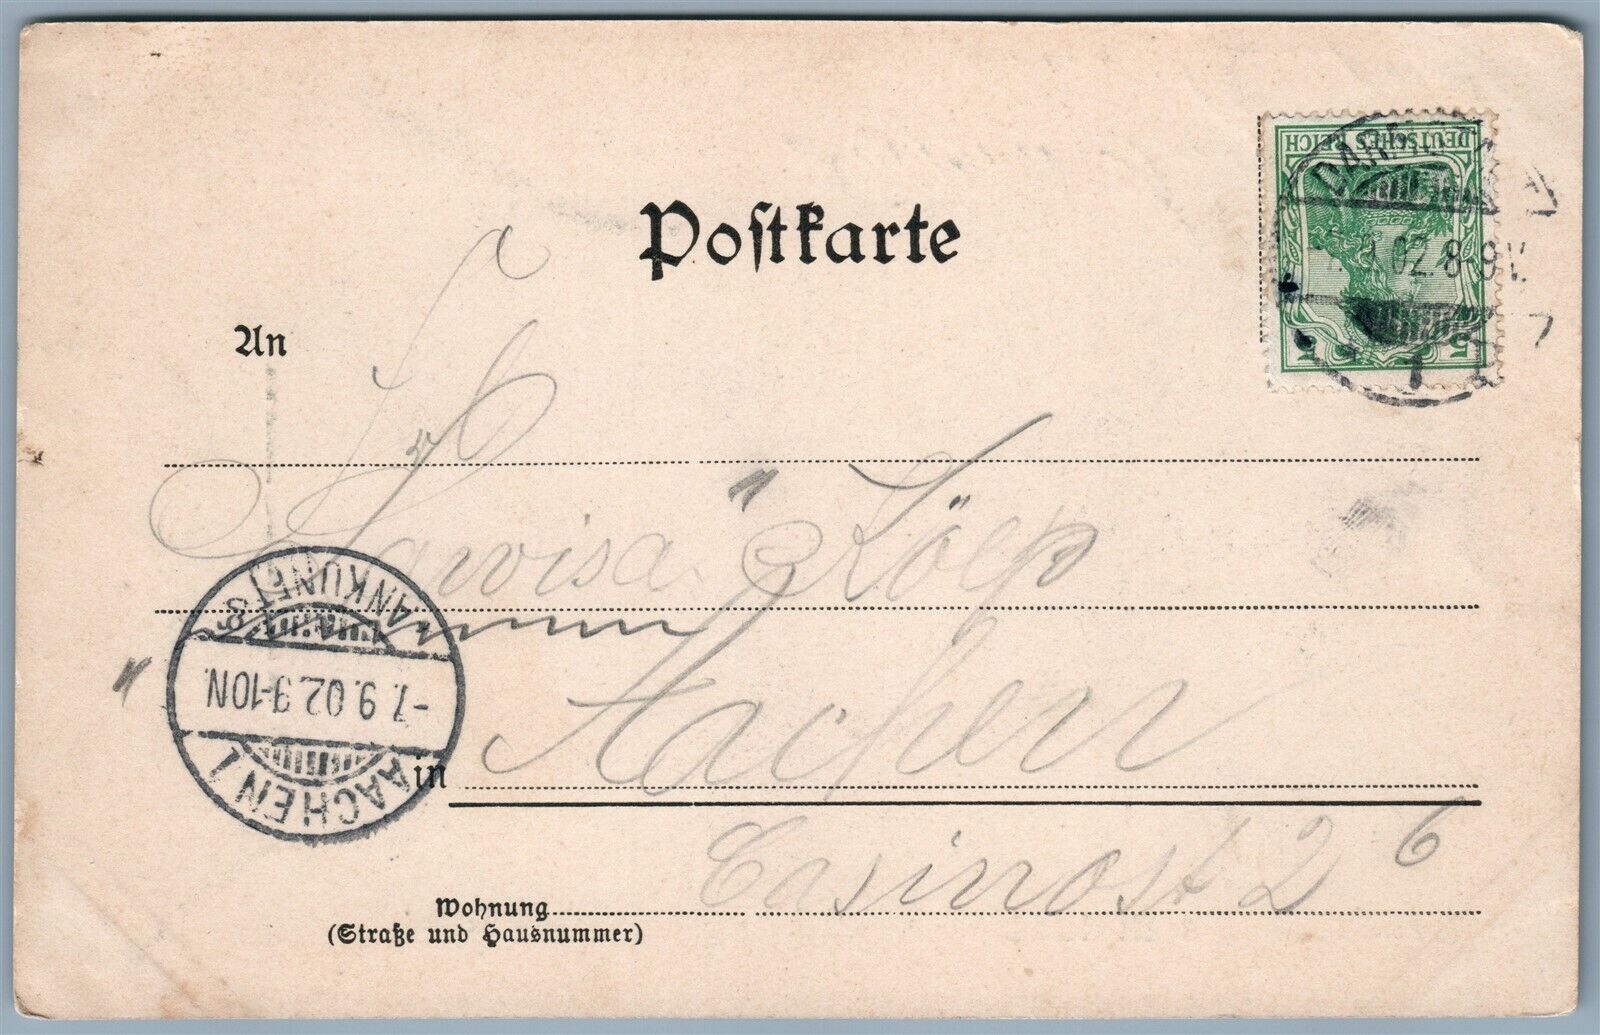 Postkarte
DEUTSCHES REICH
5 5
DARM
9.02. 8-9V.
1
An
Frl
Lawisa Kölp
ANKUNFT
-7.9.02.9-10N.
AACHEN 1
in Aachen
Casinost 26
Wohnung
(Straße und Hausnummer)